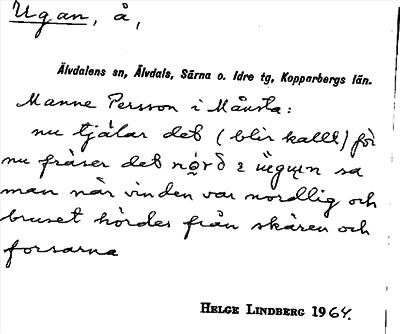 Ugan, å,
Älvdalens sn, Älvdals, Särna o. Idre tg, Kopparbergs län.
Manne Persson i Månsta:
nu tjälar det (blir kallt) för
nu fräser det nord i
man når vinden var nordlig och
bruset hördes från skären och
forsarna
HELGE LINDBERG 1964.